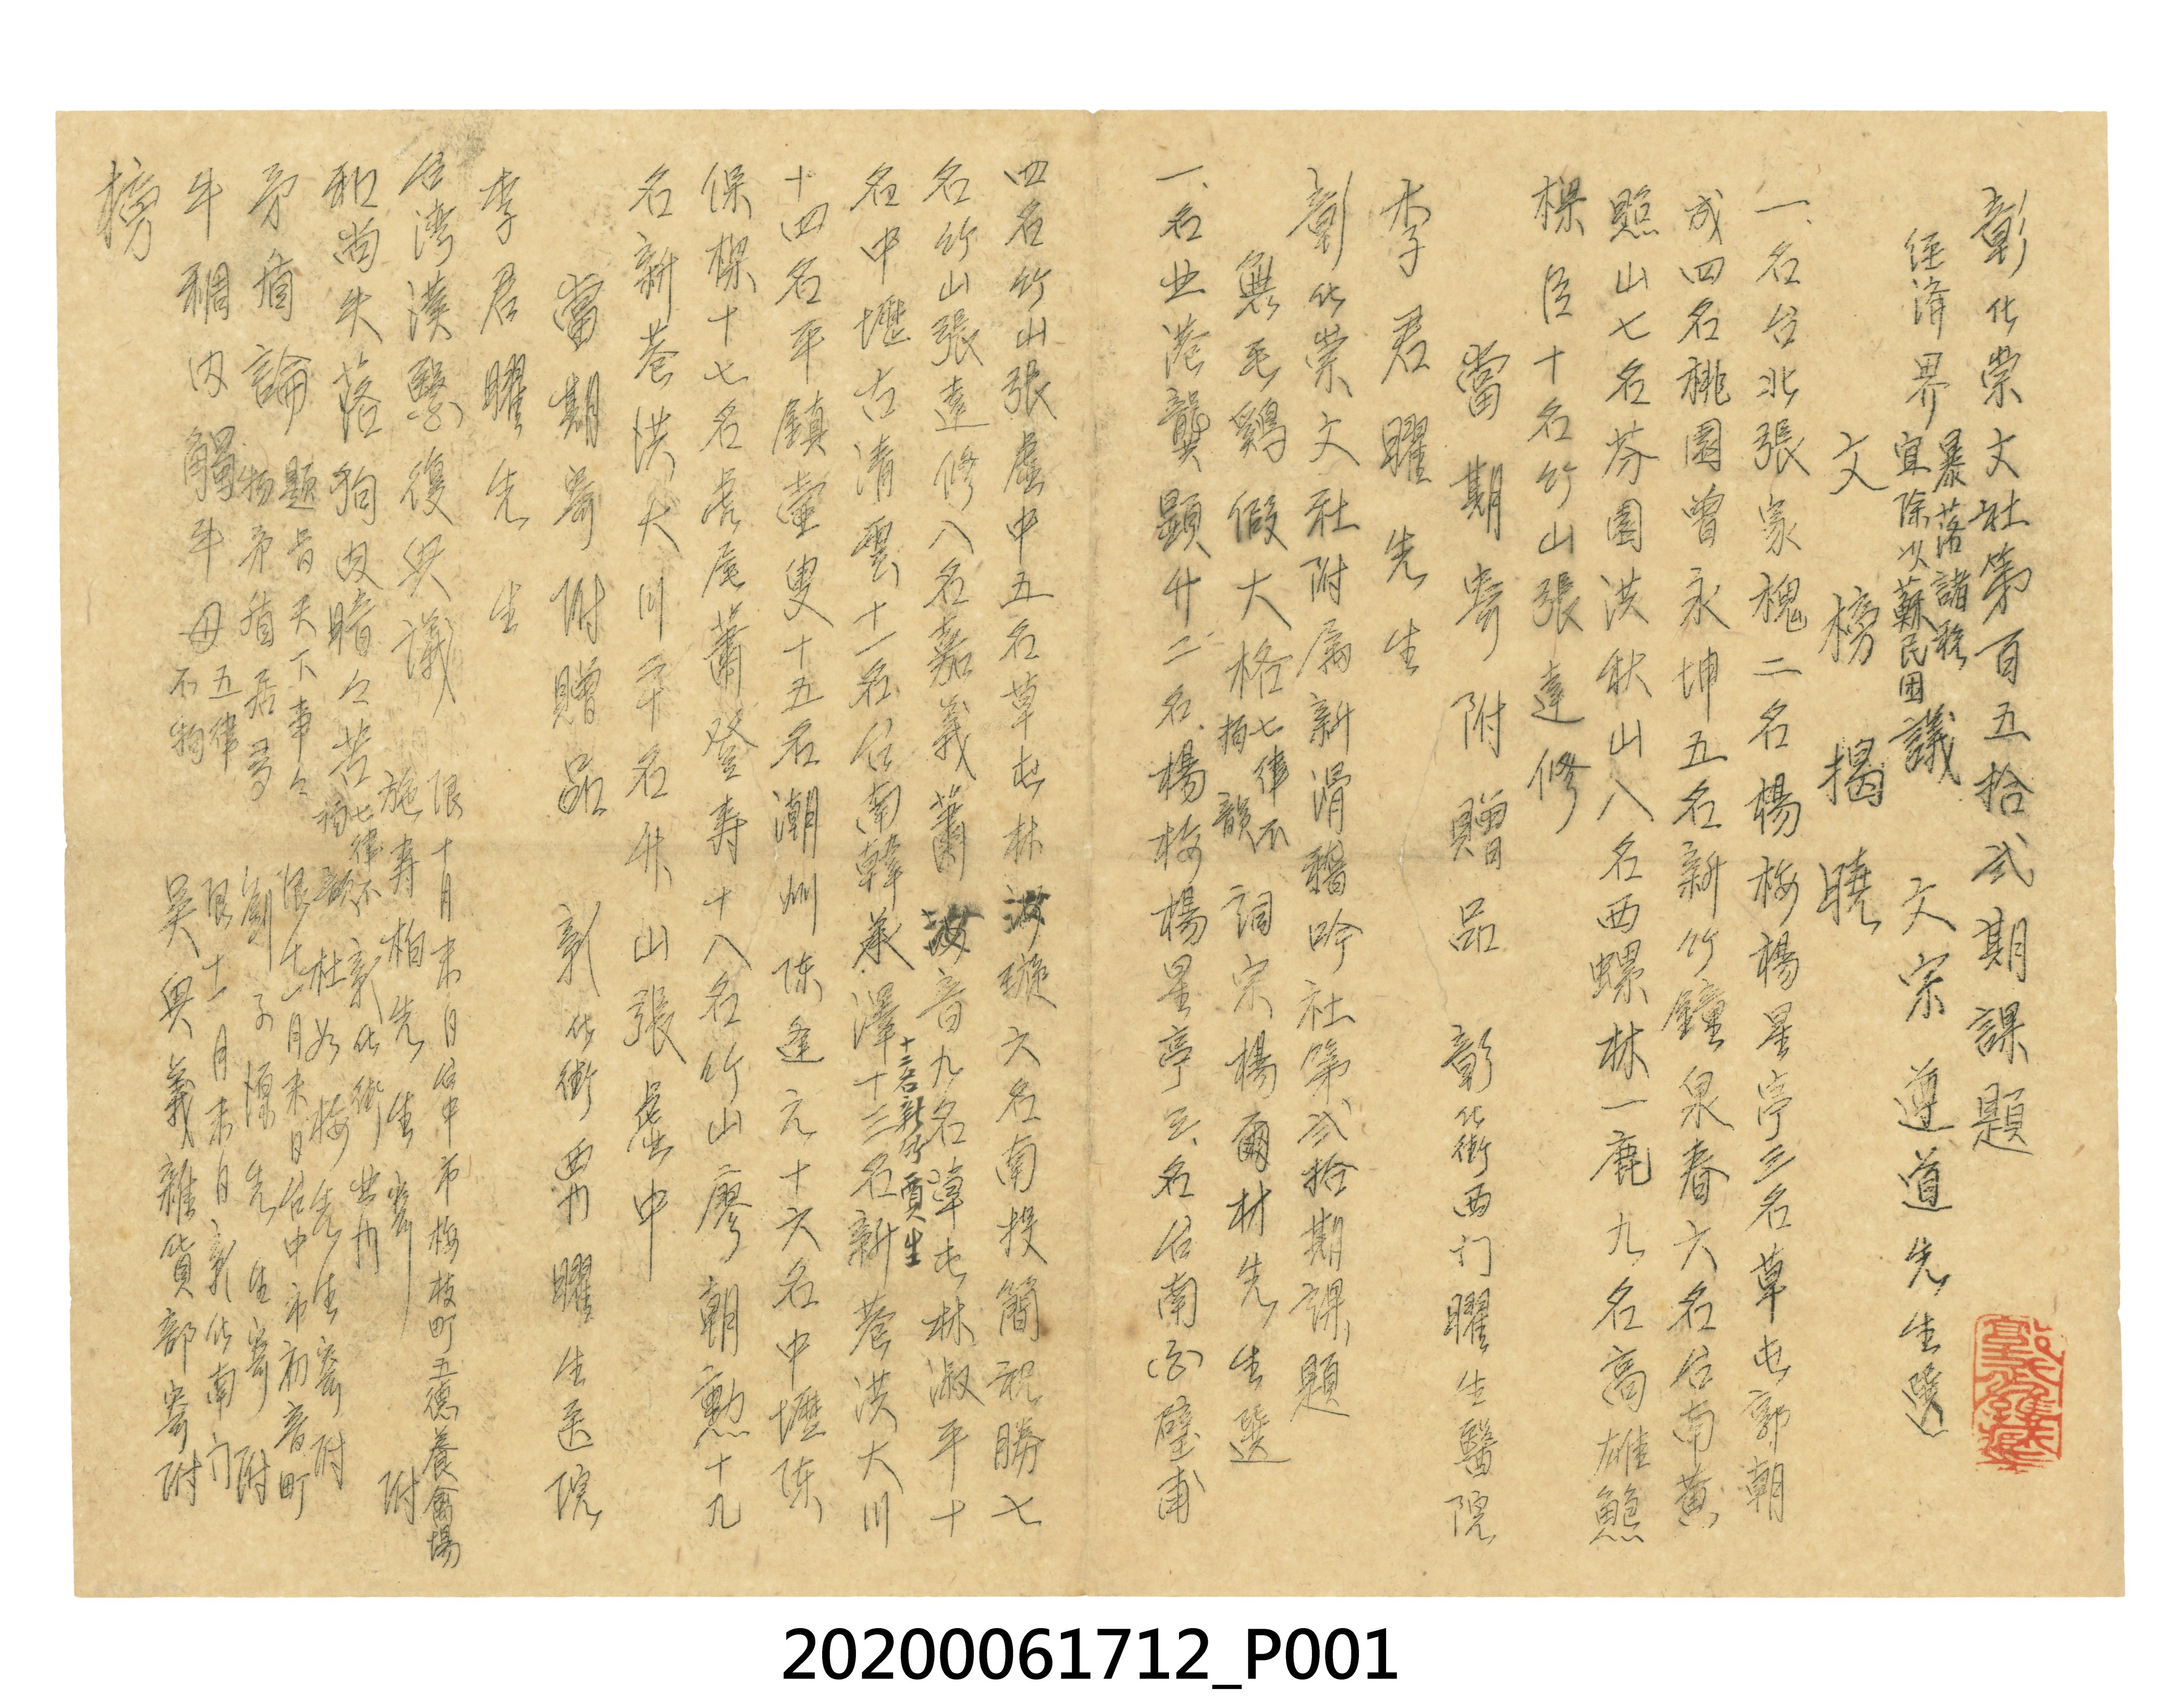 彰化崇文社第百五拾弍期課題
經濟界暴落諸務宜除以蘇民困議 文宗 遵道先生選
文榜揭曉
一、名台北張家槐二名楊梅楊星亭三名草屯郭朝
成四名桃園曾永坤五名新竹鐘泉春六名台南黃
照山七名芬園洪秋山八名西螺林一鹿九名高雄鮑
樑臣十名竹山張達修
當期寄附贈品 彰化街西门曜生醫院
李君曜先生
彰化崇文社附屬新滑稽吟社第弍拾期課題
無毛鷄假大格 七律不拘韻 詞宗楊爾材先生選
一、名北港龔顯升二名楊梅楊星亭三名台南白璧甫
四名竹山張虛中五名草屯林 璇六名南投簡祝勝七
名竹山張達修八名嘉義蕭 音九名草屯林淑平十
名中壢古清雲十一名台南韓承澤十二名新竹賣生十三名新巷洪大川
十四名平鎮 叟十五名潮州陈逢元十六名中壢陈
保樑十七名虎尾蕭登寿十八名竹山廖朝勳十九
名新巷洪大川二十名 山張虛中
當期寄附贈品 彰化街西門曜生医院
李君曜先生
台湾漢學復興議 限十月末日台中市梅枝町五德養禽場
施寿柏先生寄附
和尚失落狗肉暗々苦 七律不拘韻 彰化街北門
杜如梅先生寄附
矛盾論 題旨天下事々物矛盾居多 限十一月末日台中市初音町
劉子 先生寄附
牛稠内觸牛母 五律不拘 限十一月末日彰化南门
吳興義雜貨部寄附
榜
20200061712_P001